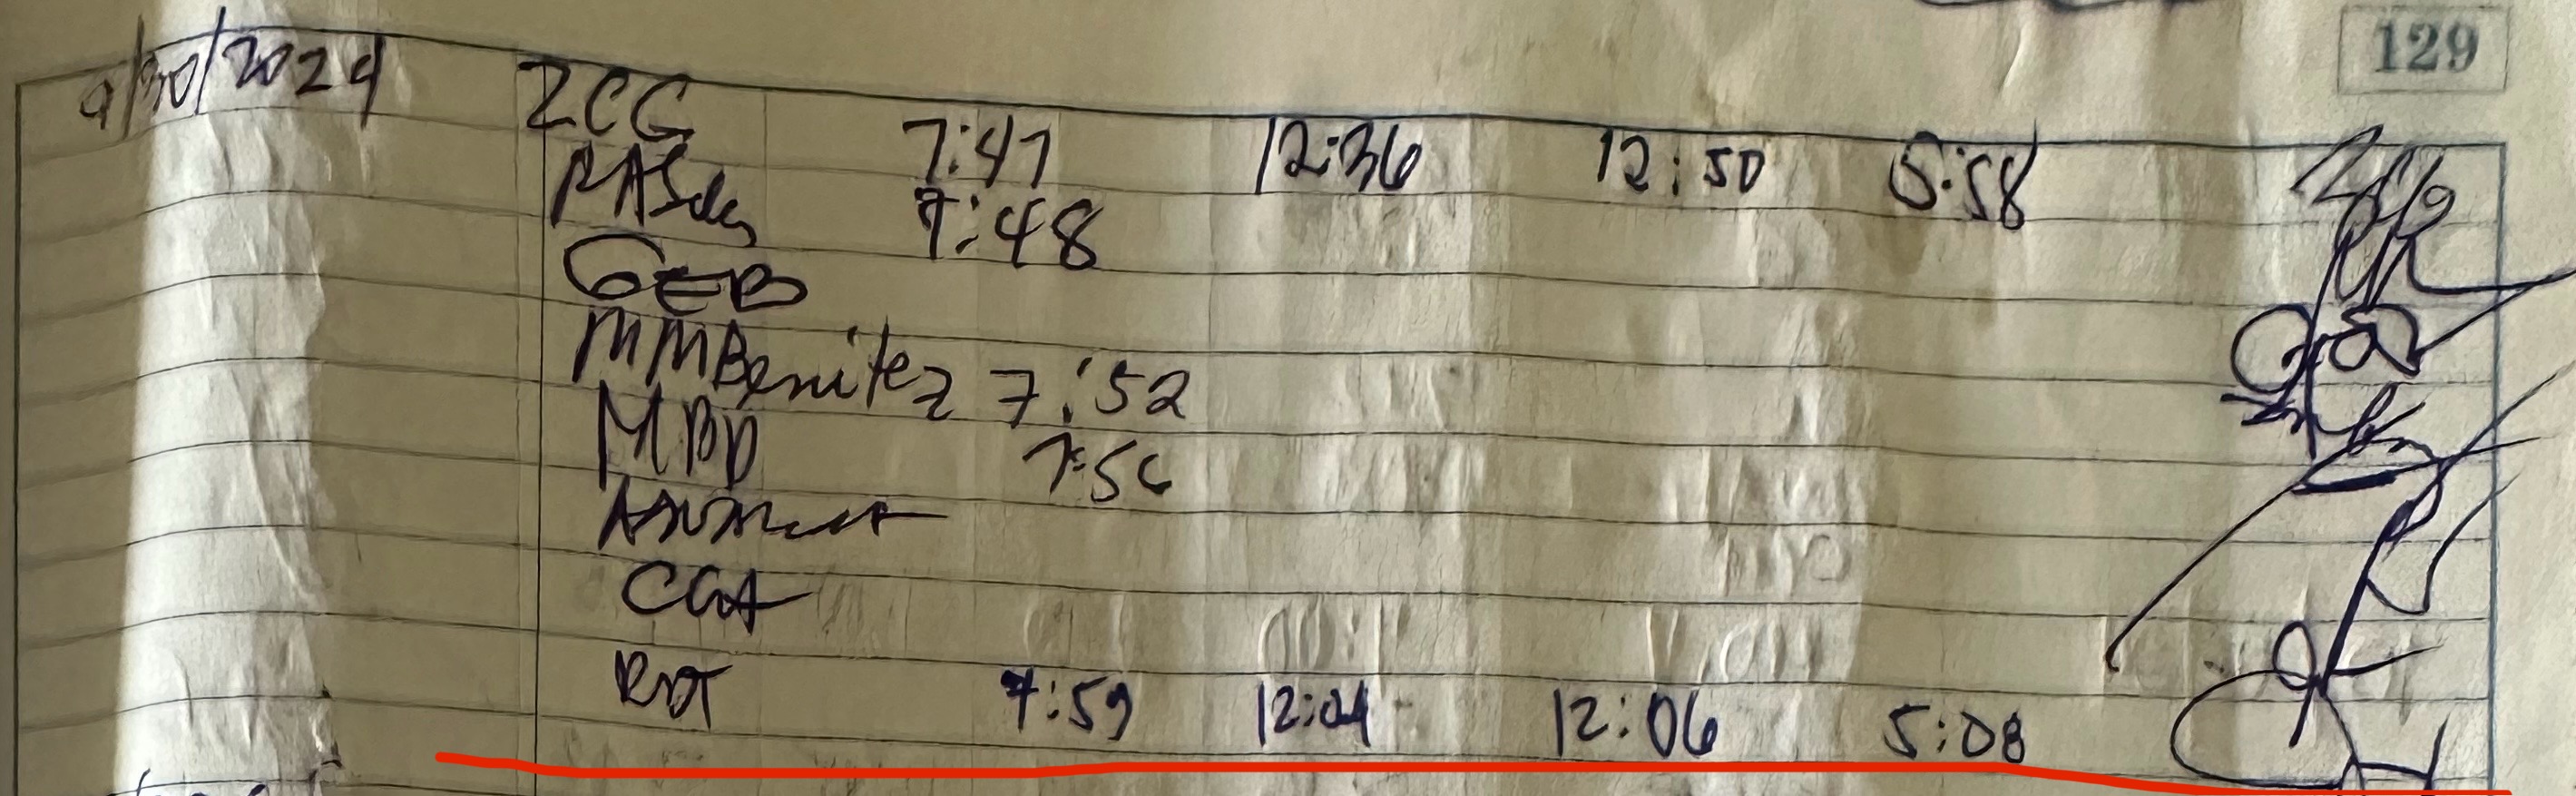 129
9/30/2024 ZCG 7:47 12:36 12:50 5:58
7:48
GEB
MMBenitez 7:52
MBD 7:56
CGA
RDT 7:59 12:04 12:06 5:08